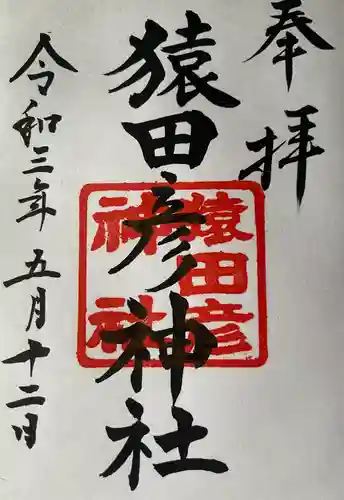 奉拝
猿田彦神社
猿田彦
神社
令和三年五月十二日